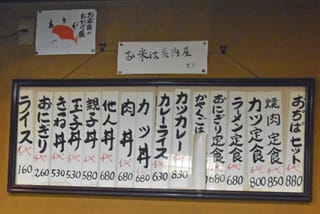 お米は県内産
です
おぢばセット 代 880
焼肉定食 代 850
カツ定食 代 800
ラーメン定食 代 680
おにぎり定食 代 680
かやくごはん
カツカレー 代 830
カレーライス 代 630
カツ丼 680
肉丼 680
他人丼 代 680
親子丼 代 580
玉子丼 代 530
きつね丼 代 530
おにぎり 代 260
ライス 代 160